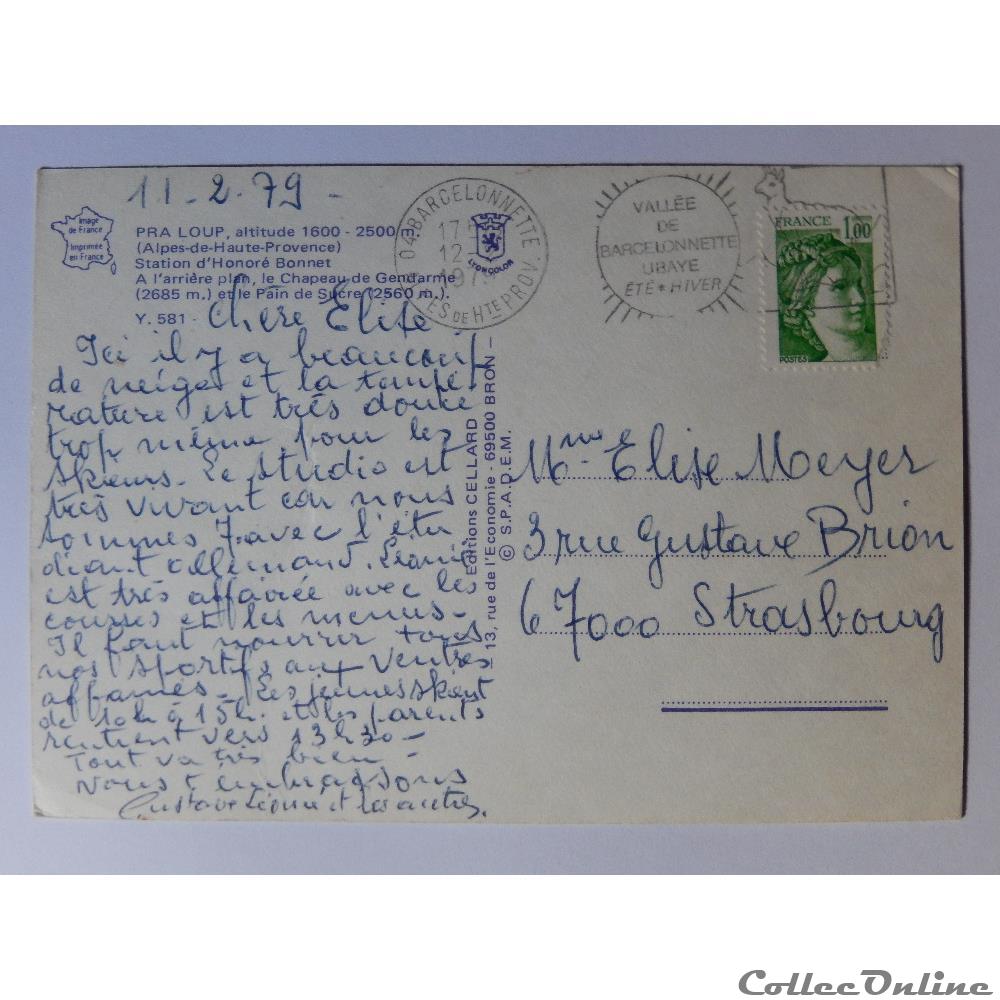 11-2-79-
Image
de France
Imprimée
en France
PRA LOUP, altitude 1600 - 2500 m.
(Alpes-de-Haute-Provence)
Station d'Honoré Bonnet
A l'arrière plan, le Chapeau de Gendarme
(2685 m.) et le Pain de Sucre (2560 m.).
Y. 581 -
Chère Elise
Ici il y a beaucoup
de neige et la tempé
rature est très douce
trop même pour les
skieurs. Le studio est
très vivant car nous
sommes 7 avec l'étu
diant allemand. Léonie
est très affairée avec les
courses et les menus-
Il faut nourrir tous
nos sportifs aux ventres
affamés- Les jeunes skient
de 10h à 15h. et les parents
rentrent vers 13h30-
Tout va très bien-
Nous t'embrassons
Gustave Léonie et les autres.
04 BARCELONNETTE
17H
12-
1979
ALPES DE HTE PROV.
LYONCOLOR
Editions CELLARD
- 13, rue de l'Economie - 69500 BRON -
© S.P.A.D.E.M.
VALLÉE
DE
BARCELONNETTE
UBAYE
ÉTÉ * HIVER
FRANCE 1,00
POSTES
Mme Elise Meyer
3 rue Gustave Brion
67000 Strasbourg
CollecOnline